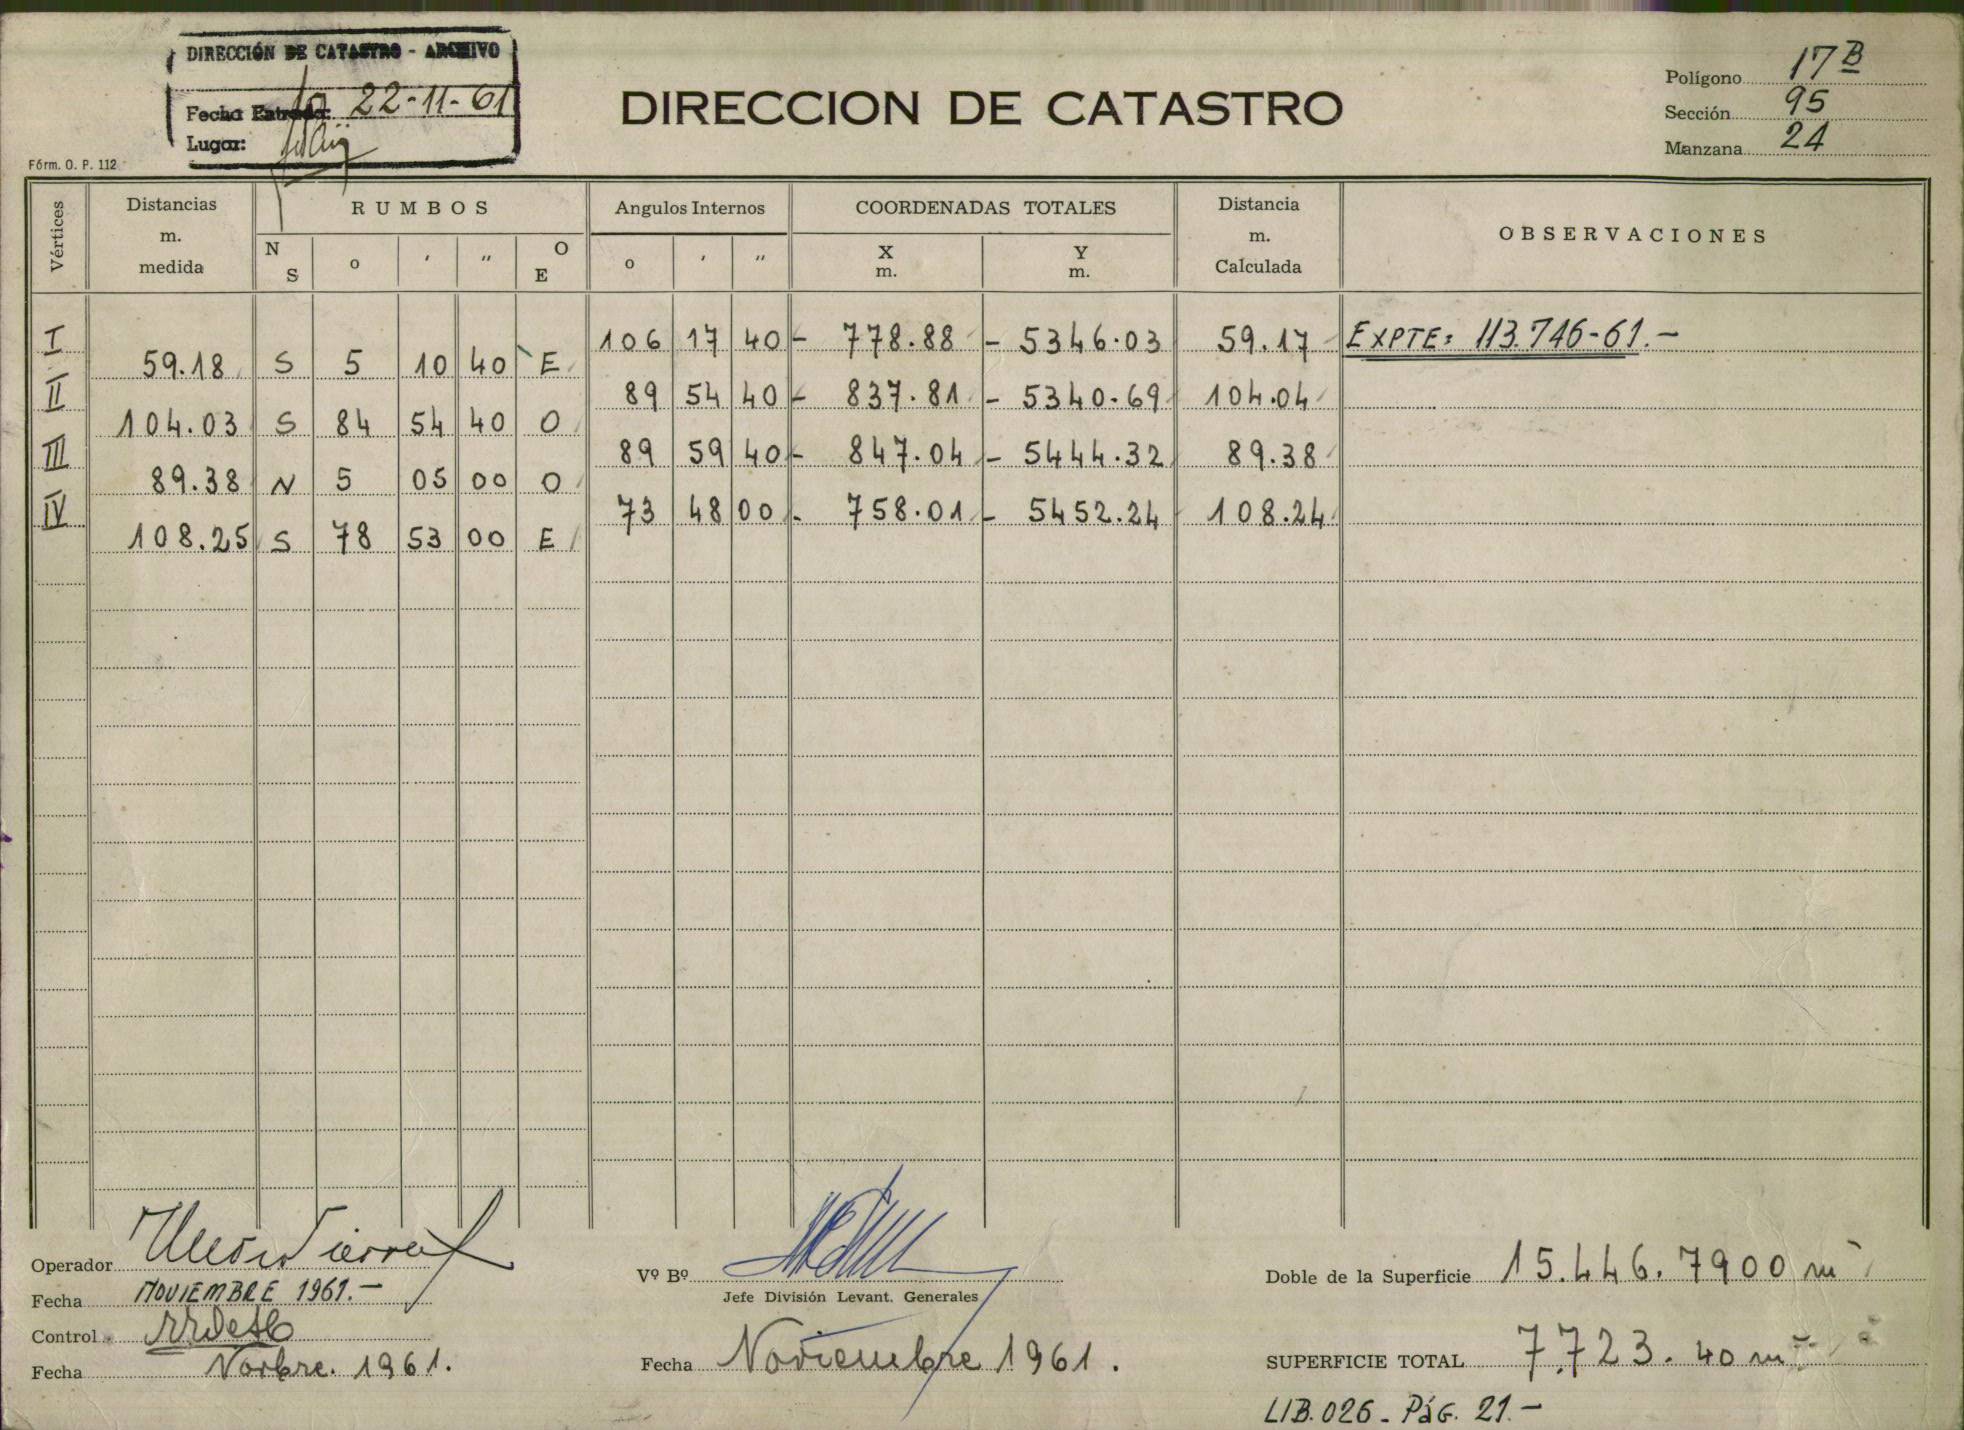 DIRECCIÓN DE CATASTRO - ARCHIVO
Fecha Entrada: 22-11-61
Lugar:
Fórm. O. P. 112
DIRECCION DE CATASTRO
Polígono 17 B
Sección 95
Manzana 24
Vértices Distancias m. medida RUMBOS N S o ′ ″ O E Angulos Internos o ′ ″ COORDENADAS TOTALES X m. Y m. Distancia m. Calculada OBSERVACIONES
I 106 17 40 - 778.88 - 5346.03 59.17 EXPTE: 113.746-61.-
59.18 S 5 10 40 E
II 89 54 40 - 837.81 - 5340.69 104.04
104.03 S 84 54 40 O
III 89 59 40 - 847.04 - 5444.32 89.38
89.38 N 5 05 00 O
IV 73 48 00 - 758.01 - 5452.24 108.24
108.25 S 78 53 00 E
Operador
Fecha NOVIEMBRE 1961.-
Control
Fecha Novbre. 1961.
Vº Bº
Jefe División Levant. Generales
Fecha Noviembre 1961.
Doble de la Superficie 15.446.7900 m²
SUPERFICIE TOTAL 7.723.40 m²
LIB. 026 - PáG. 21.-